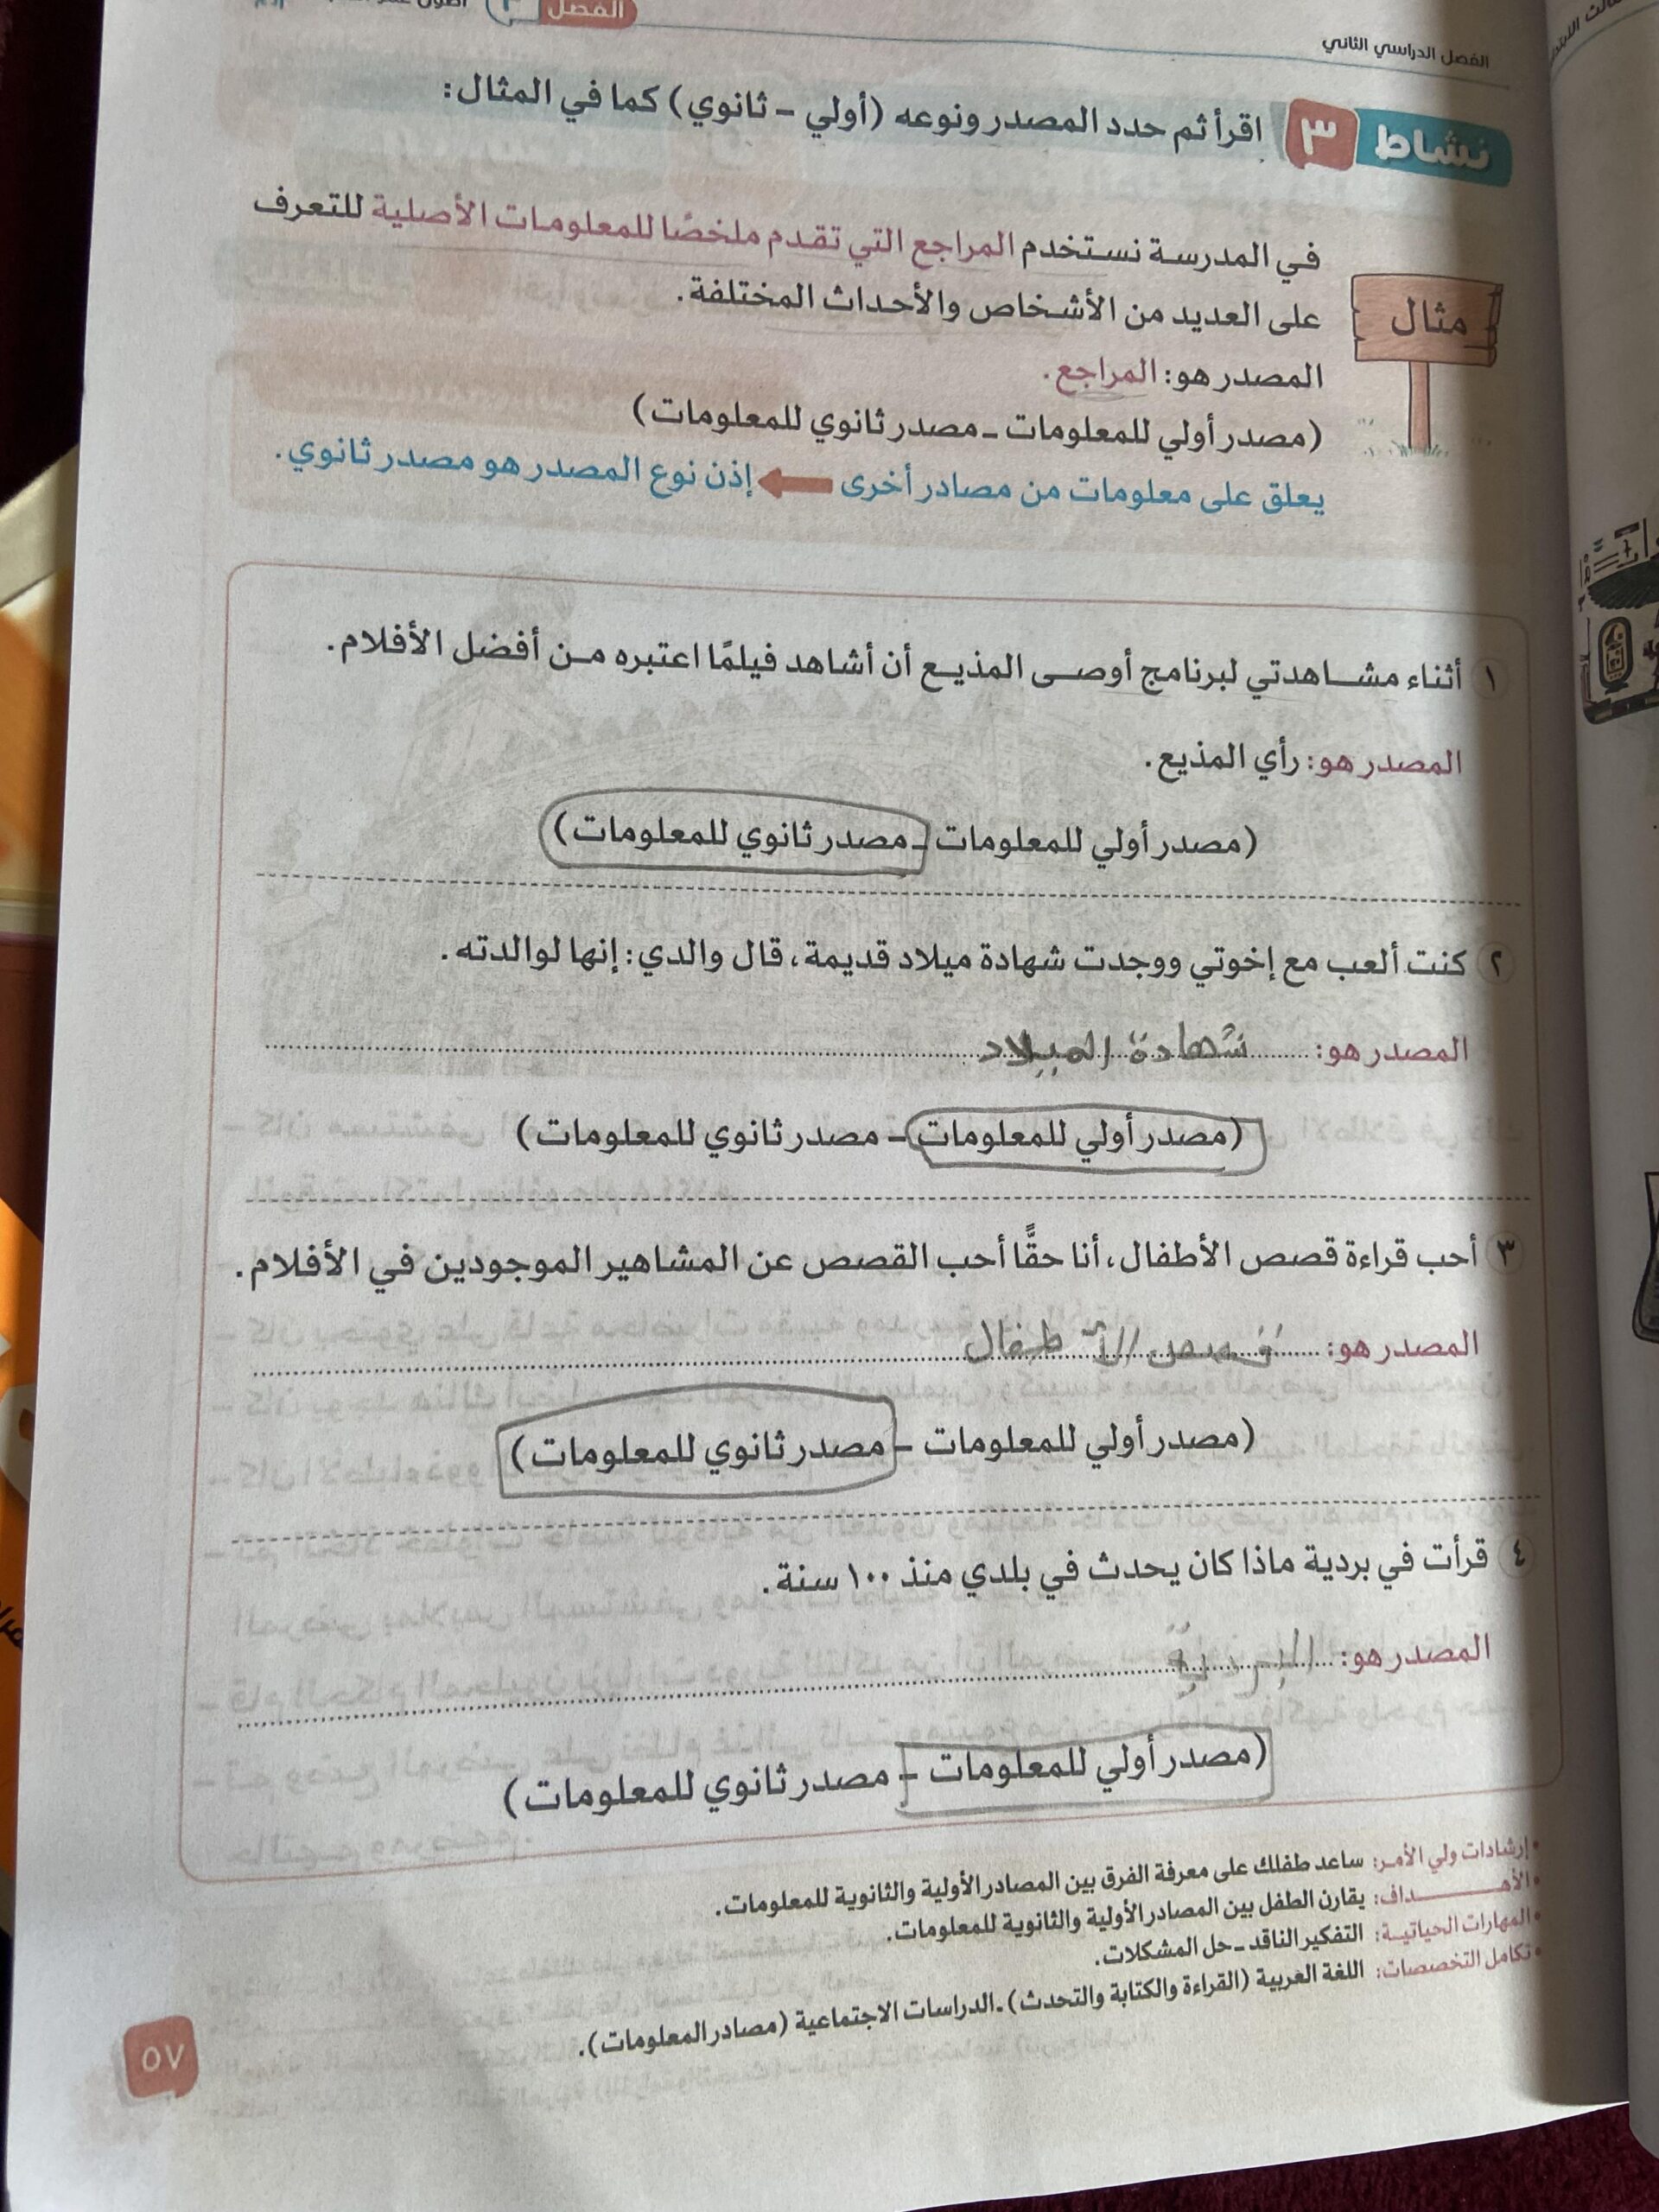 الفصل
الفصل الدراسي الثاني
نشاط ٣ اقرأ ثم حدد المصدر ونوعه (أولي - ثانوي) كما في المثال:
مثال
في المدرسة نستخدم المراجع التي تقدم ملخصًا للمعلومات الأصلية للتعرف
على العديد من الأشخاص والأحداث المختلفة.
المصدر هو: المراجع.
(مصدر أولي للمعلومات - مصدر ثانوي للمعلومات)
يعلق على معلومات من مصادر أخرى إذن نوع المصدر هو مصدر ثانوي.
١ أثناء مشاهدتي لبرنامج أوصى المذيع أن أشاهد فيلمًا اعتبره من أفضل الأفلام.
المصدر هو: رأي المذيع.
(مصدر أولي للمعلومات - مصدر ثانوي للمعلومات)
٢ كنت ألعب مع إخوتي ووجدت شهادة ميلاد قديمة، قال والدي: إنها لوالدته.
المصدر هو: شهادة الميلاد
(مصدر أولي للمعلومات - مصدر ثانوي للمعلومات)
٣ أحب قراءة قصص الأطفال، أنا حقًّا أحب القصص عن المشاهير الموجودين في الأفلام.
المصدر هو: قصص الأطفال
(مصدر أولي للمعلومات - مصدر ثانوي للمعلومات)
٤ قرأت في بردية ماذا كان يحدث في بلدي منذ ١٠٠ سنة.
المصدر هو: البردية
(مصدر أولي للمعلومات - مصدر ثانوي للمعلومات)
• إرشادات ولي الأمر: ساعد طفلك على معرفة الفرق بين المصادر الأولية والثانوية للمعلومات.
• الأهداف: يقارن الطفل بين المصادر الأولية والثانوية للمعلومات.
• المهارات الحياتية: التفكير الناقد - حل المشكلات.
• تكامل التخصصات: اللغة العربية (القراءة والكتابة والتحدث) - الدراسات الاجتماعية (مصادر المعلومات).
٥٧